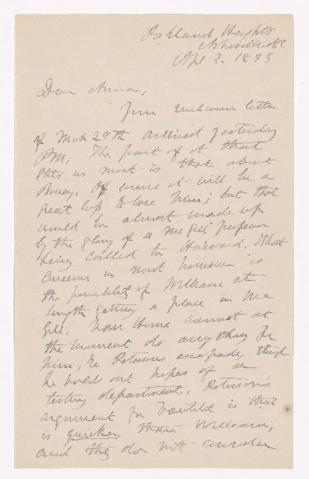 Oakland Heights
Asheville
Apl 3. 1893
Dear Anna,
Your welcome letter
of Mch 29th arrived yesterday
P.M. The part of it that
hits us most is that about
Of course it will be a
great loss to lose him; but that
would be almost made up
by the glory of a McGill Professor
being called to Harvard. What
concerns us most however is
the possibility of William at
length getting a place in Mc
Gill. Your cannot at
the moment do anything for
him, he though
he holds out hopes of a
testing department.
argument for is that
is quicker than William,
and they do not consider